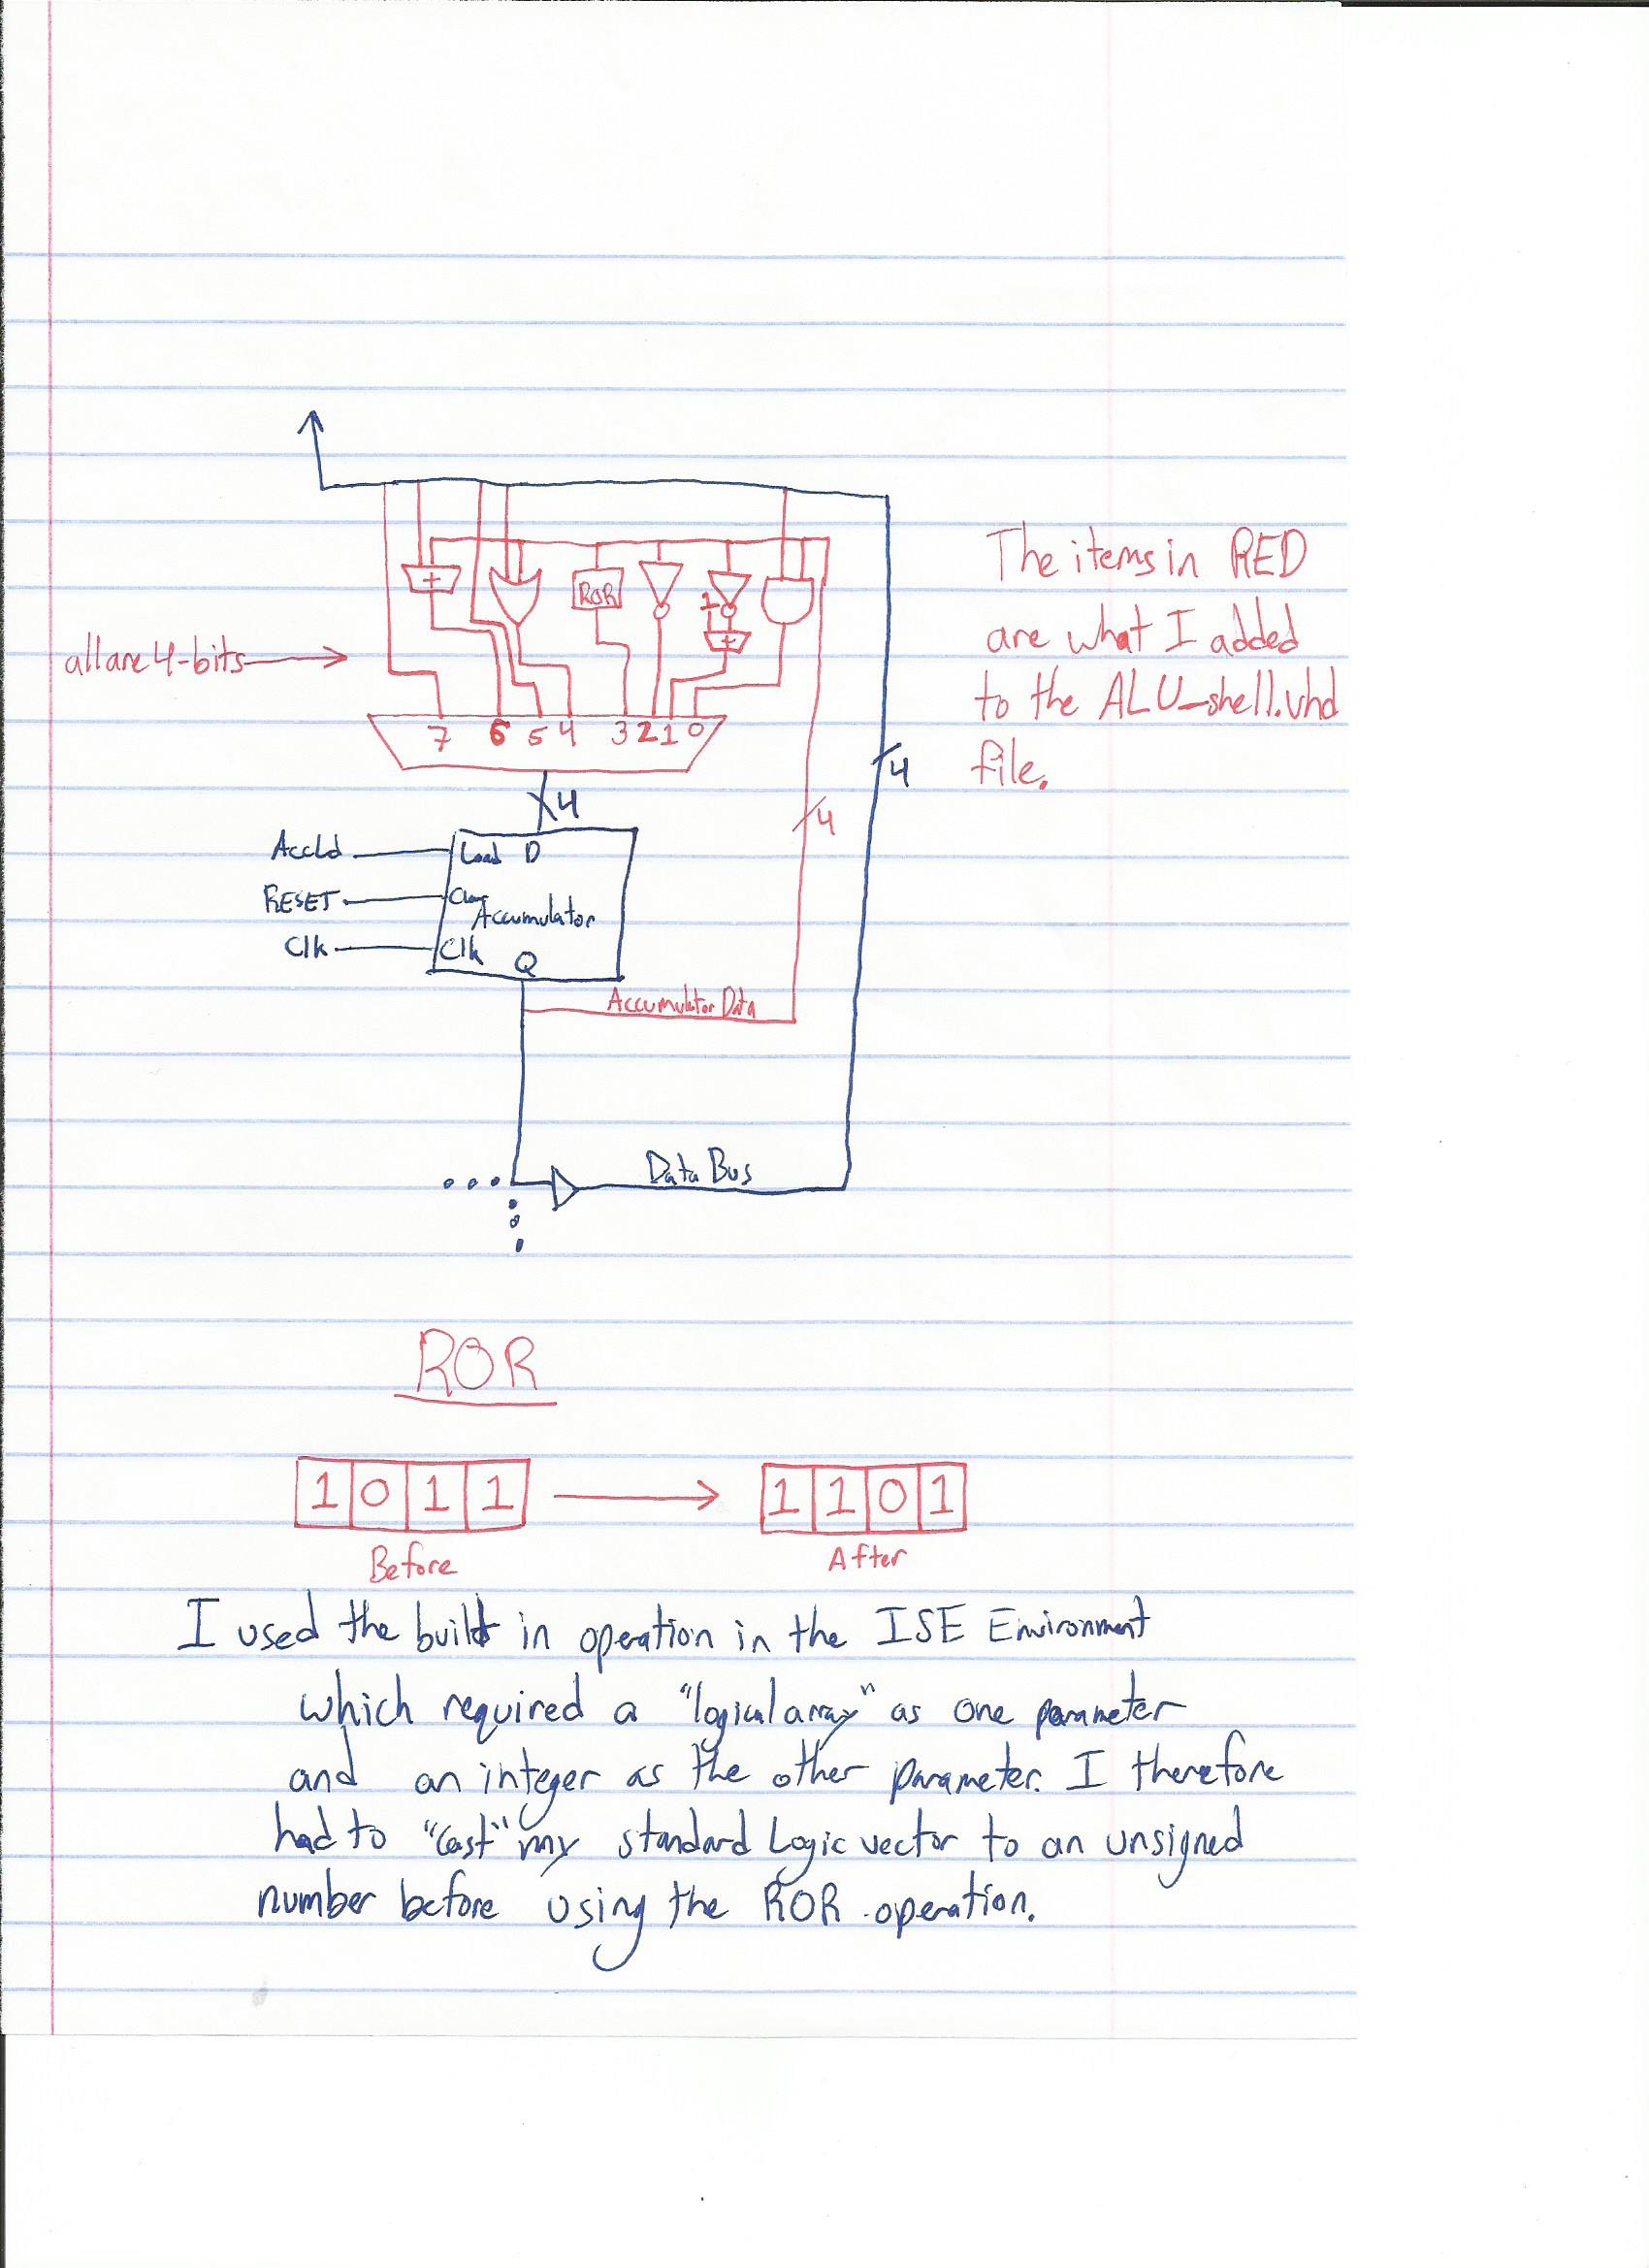 +
ROR
1
+
The items in RED
are what I added
to the ALU_shell.vhd
file.
all are 4-bits
7 6 5 4 3 2 1 0
4
4
4
AccLd
Load D
RESET
Clr
Accumulator
Clk
Clk
Q
Accumulator Data
Data Bus
ROR
1 0 1 1
1 1 0 1
Before
After
I used the built in operation in the ISE Environment
which required a "logical array" as one parameter
and an integer as the other parameter. I therefore
had to "cast" my standard Logic vector to an unsigned
number before using the ROR operation.